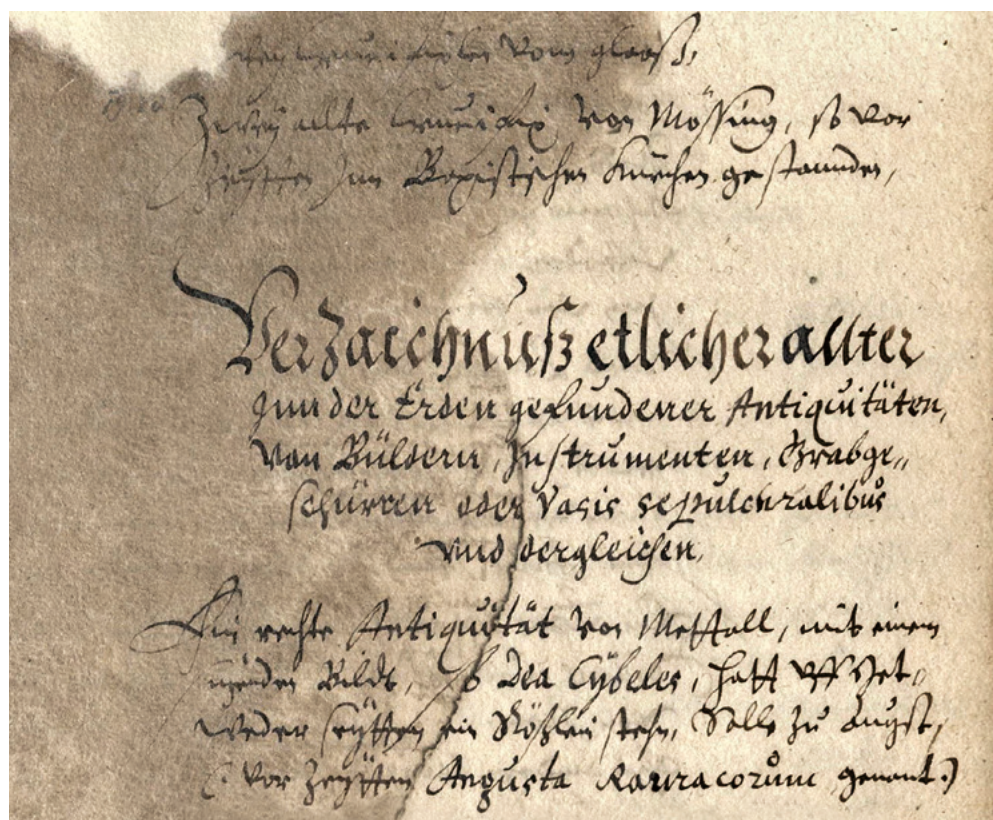 vom glaaß,
Zwey allte Crucifix von Mössing, so vor
Zeytten inn Bapistischen Kürchen gestannden,
Verzaichnuß etlicher allter
Inn der Erden gefundener Antiquitäten,
Von Büldern, Instrumenten, Grabge„
schürren oder Vasis sepulchralibus
vnd dergleichen,
Ein rechte Antiquität von Mettall, mit einem
Bildt, so Dea Cybeles, hatt vff Jet„
weder seytten ein Rößlein stehn, Solle zu Augst,
(: vor Zeytten Augusta Rauracorum genant :)